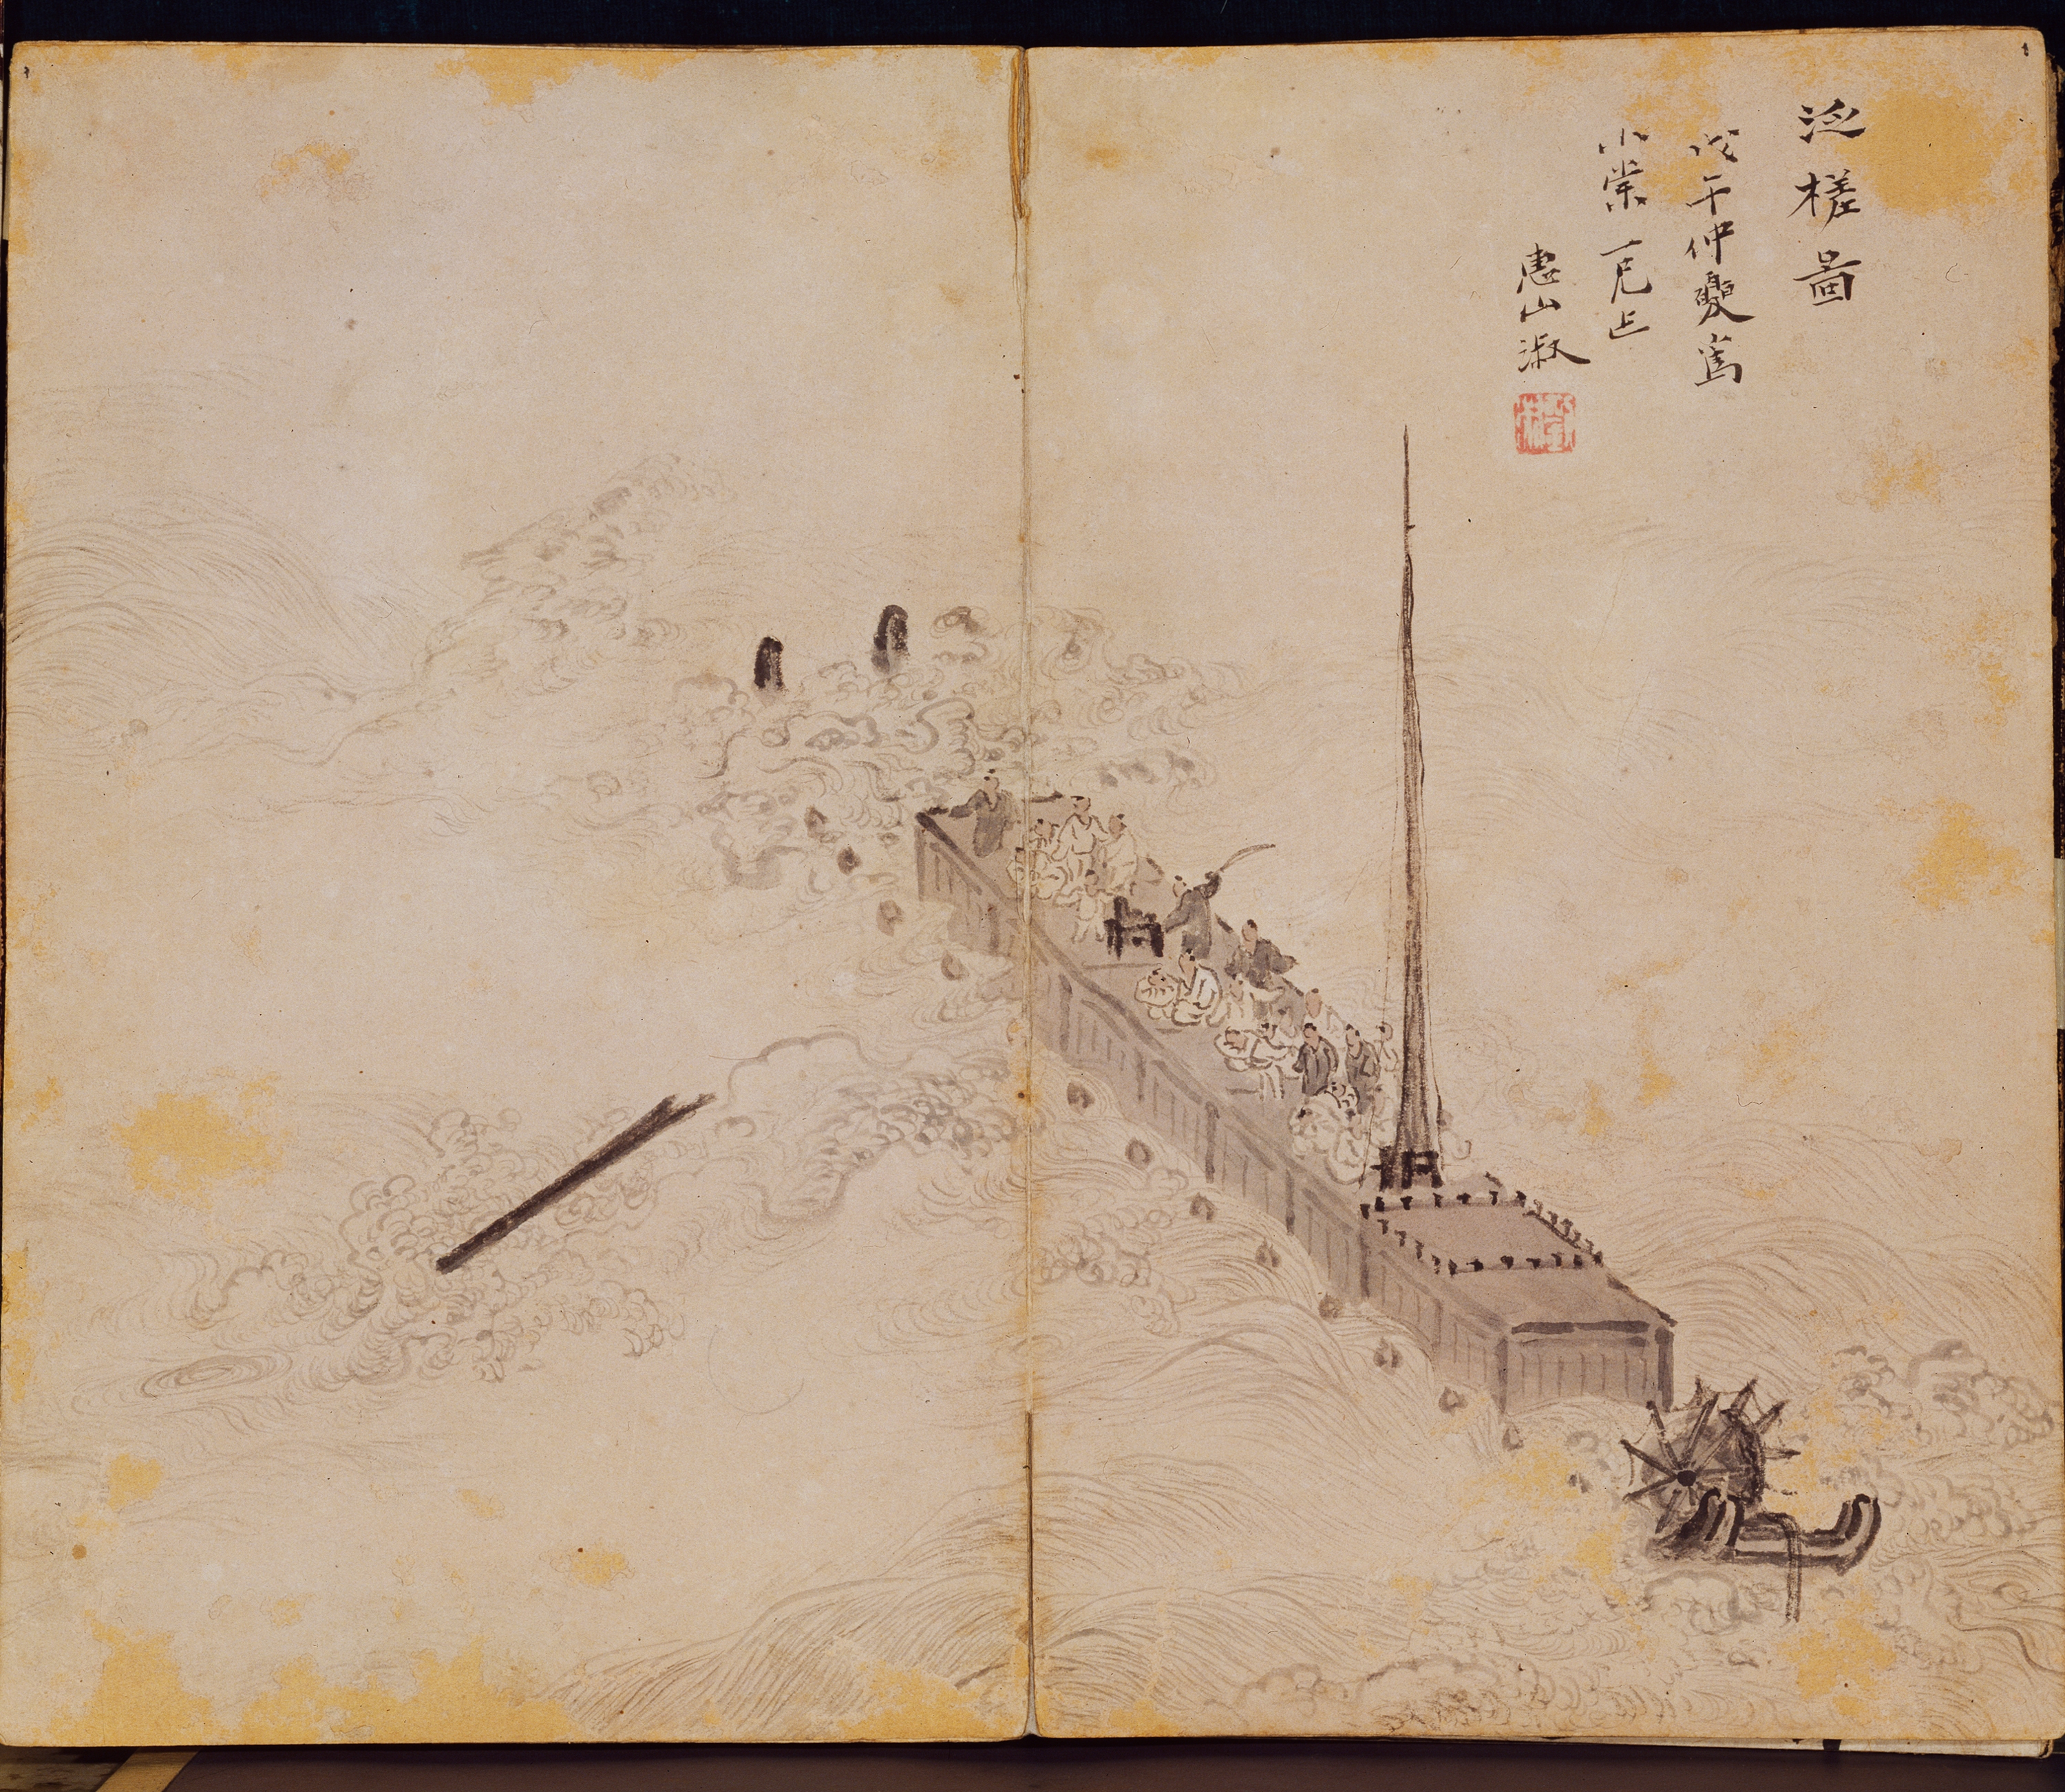 泛槎圖
戊午仲夏寫
小棠一兄正
惠山淑